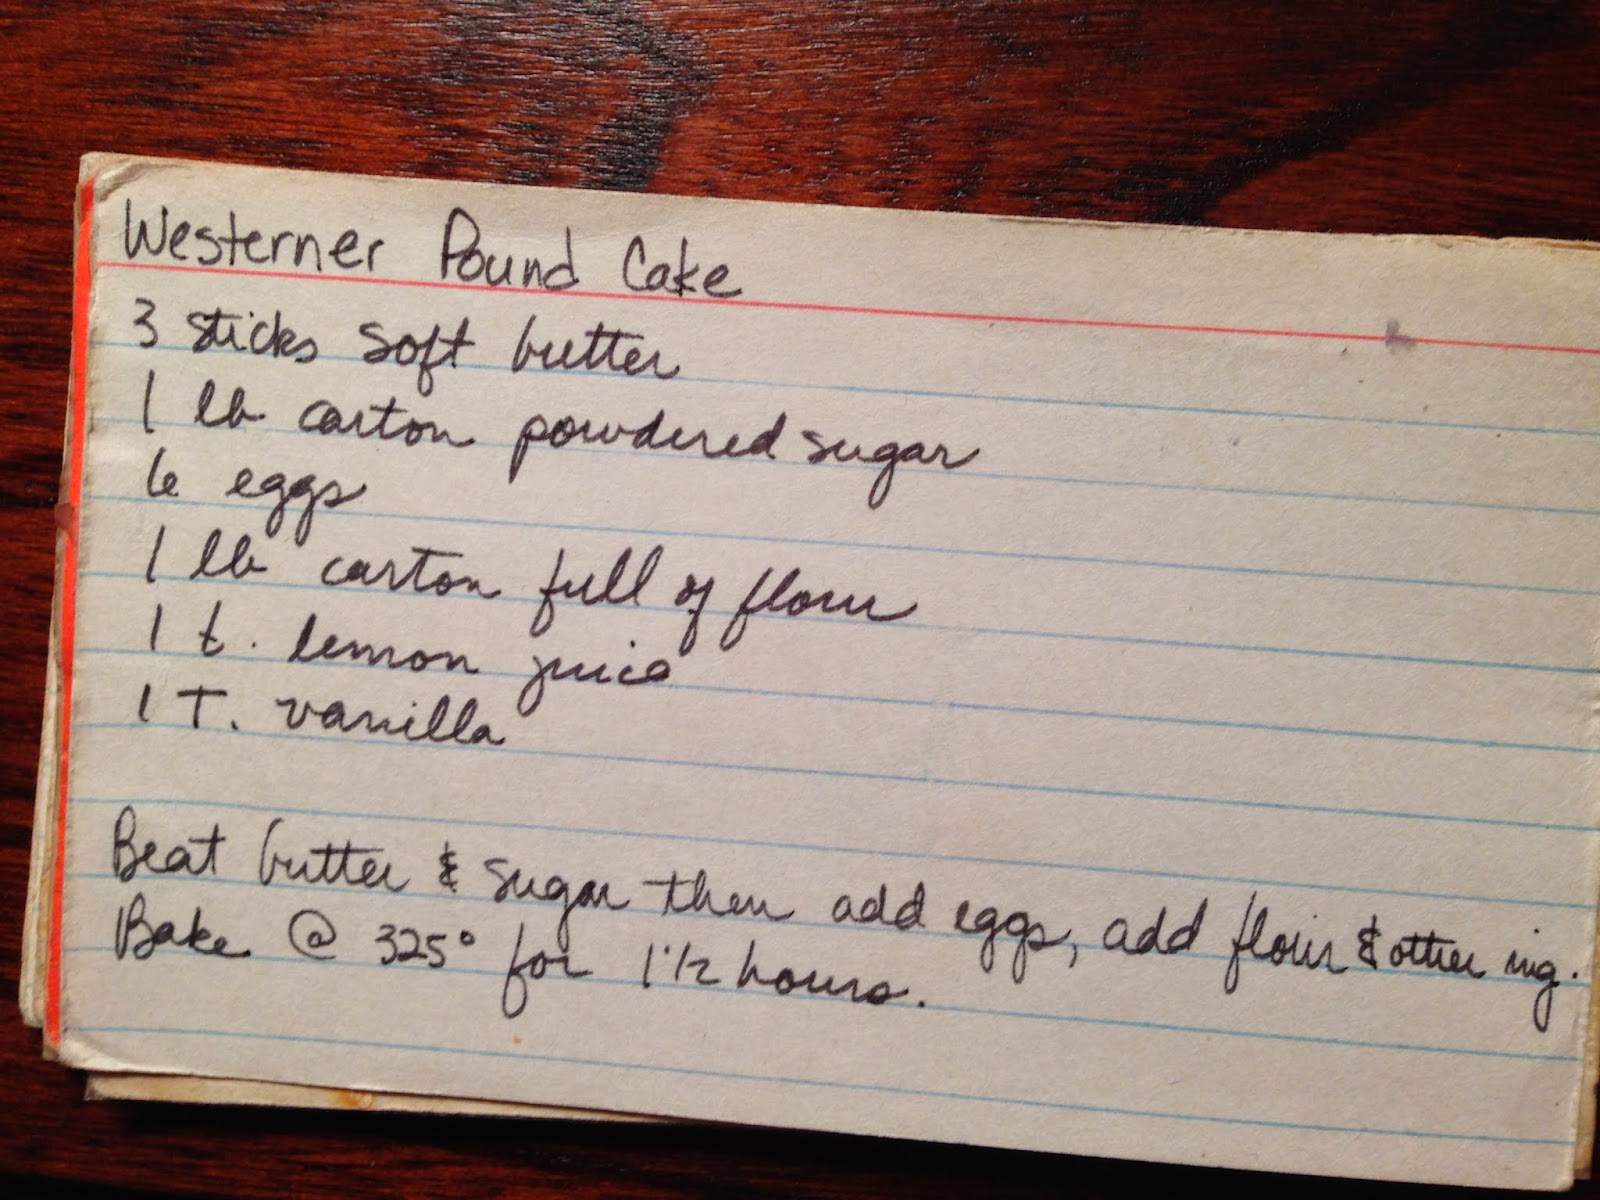 Westerner Pound Cake
3 sticks soft butter
1 lb carton powdered sugar
6 eggs
1 lb carton full of flour
1 t. lemon juice
1 T. vanilla
Beat butter & sugar then add eggs, add flour & other ing.
Bake @ 325° for 1 1/2 hours.